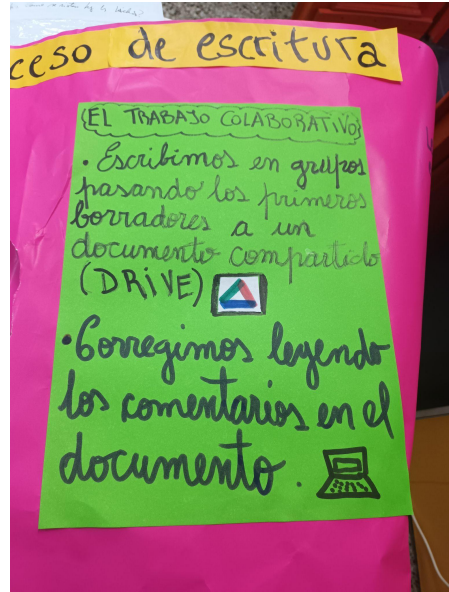 ceso de escritura
EL TRABAJO COLABORATIVO
• Escribimos en grupos
pasando los primeros
borradores a un
documento compartido
(DRIVE)
• Corregimos leyendo
los comentarios en el
documento.